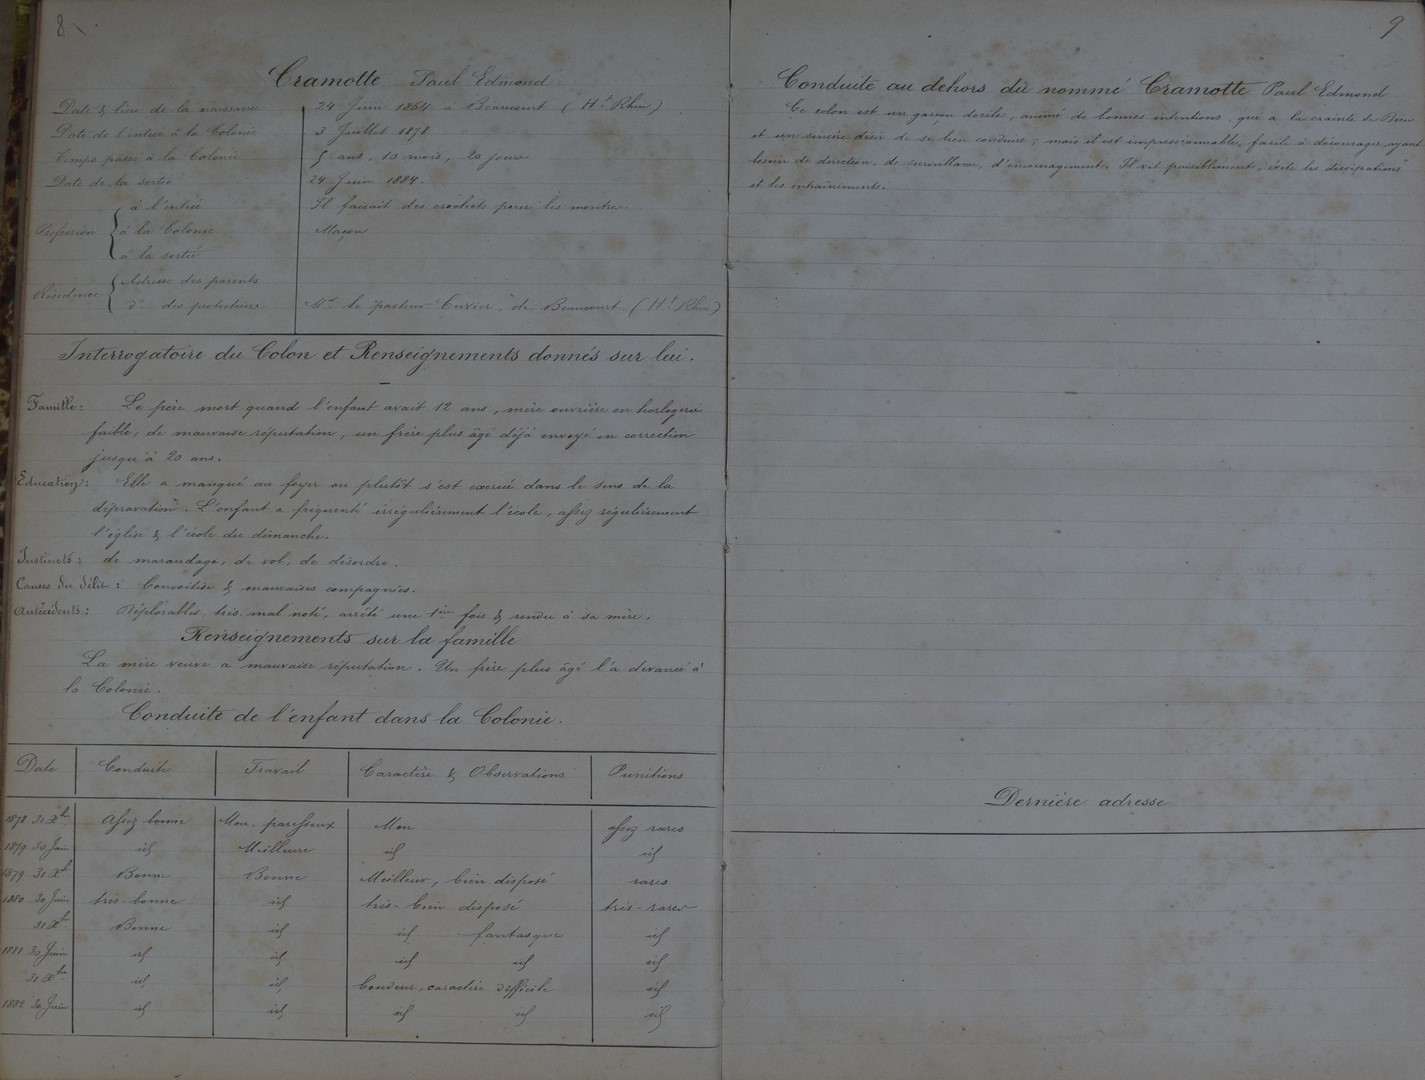 8
Cramotte Paul Edmond
Date & lieu de la naissance 24 Juin 1864 à Beaucourt (Ht Rhin)
Date de l'entrée à la Colonie 3 Juillet 1878.
Temps passé à la Colonie 5 ans, 10 mois, 20 jours
Date de la sortie 24 Juin 1884.
Profession
à l'entrée Il faisait des crochets pour les montres
à la Colonie Maçon
à la sortie
Résidence
Adresse des parents
do des protecteurs Mr le pasteur Cuvier, de Beaucourt (Ht Rhin)
Interrogatoire du Colon et Renseignements donnés sur lui.
Famille: Le père mort quand l'enfant avait 12 ans, mère ouvrière en horlogerie
faible, de mauvaise réputation, un frère plus âgé déjà envoyé en correction
jusqu'à 20 ans.
Education: Elle a manqué au foyer ou plutôt s'est exercée dans le sens de la
dépravation. L'enfant a fréquenté irrégulièrement l'école, assez régulièrement
l'église & l'école du dimanche.
Instincts: de maraudage, de vol, de désordre.
Causes du délit: Convoitise & mauvaises compagnies.
Antécédents: Déplorables, très-mal noté, arrêté une 1ère fois & rendu à sa mère.
Renseignements sur la famille
La mère veuve a mauvaise réputation. Un frère plus âgé l'a devancé à
la Colonie.
Conduite de l'enfant dans la Colonie.
Date Conduite Travail Caractère & Observations Punitions
1878 31 Xbre Assez bonne Mou, paresseux Mou assez rares
1879 30 Juin id Meilleure id id
1879 31 Xbre Bonne Bonne Meilleur, bien disposé rares
1880 30 Juin très-bonne id très-bien disposé très-rares
31 Xbre Bonne id id fantasque id
1881 30 Juin id id id id id
31 Xbre id id boudeur, caractère difficile id
1882 30 Juin id id id id id
9
Conduite au dehors du nommé Cramotte Paul Edmond
Ce colon est un garçon docile, animé de bonnes intentions, qui a la crainte de Dieu
et un sincère désir de se bien conduire; mais il est impressionnable, facile à décourager, ayant
besoin de direction, de surveillance, d'encouragement. Il vit paisiblement, évite les dissipations
et les entraînements.
Dernière adresse